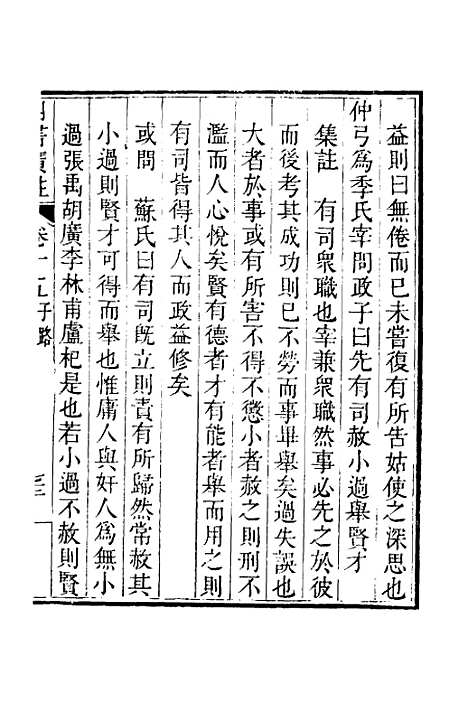 益則曰無倦而已未嘗復有所告姑使之深思也
仲弓爲季氏宰問政子曰先有司赦小過舉賢才
集註　有司衆職也宰兼衆職然事必先之於彼
而後考其成功則已不勞而事畢舉矣過失誤也
大者於事或有所害不得不懲小者赦之則刑不
濫而人心悅矣賢有德者才有能者舉而用之則
有司皆得其人而政益修矣
或問　蘇氏曰有司既立則責有所歸然常赦其
小過則賢才可得而舉也惟庸人與奸人爲無小
過張禹胡廣李林甫盧杞是也若小過不赦則賢
卷十五子路